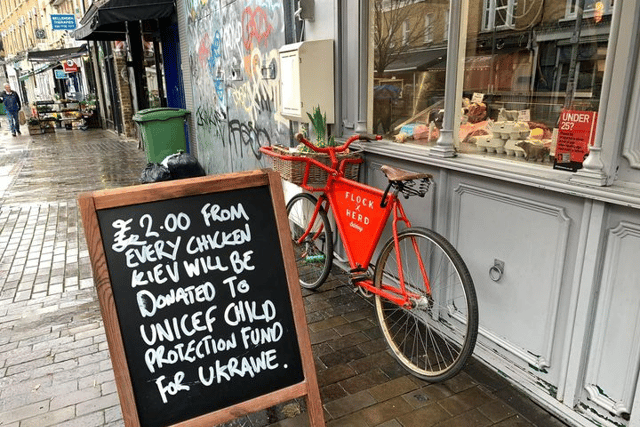 £2.00 FROM
EVERY CHICKEN
KIEV WILL BE
DONATED TO
UNICEF CHILD
PROTECTION FUND
FOR UKRAINE.
FLOCK
&
HERD
UNDER
25?